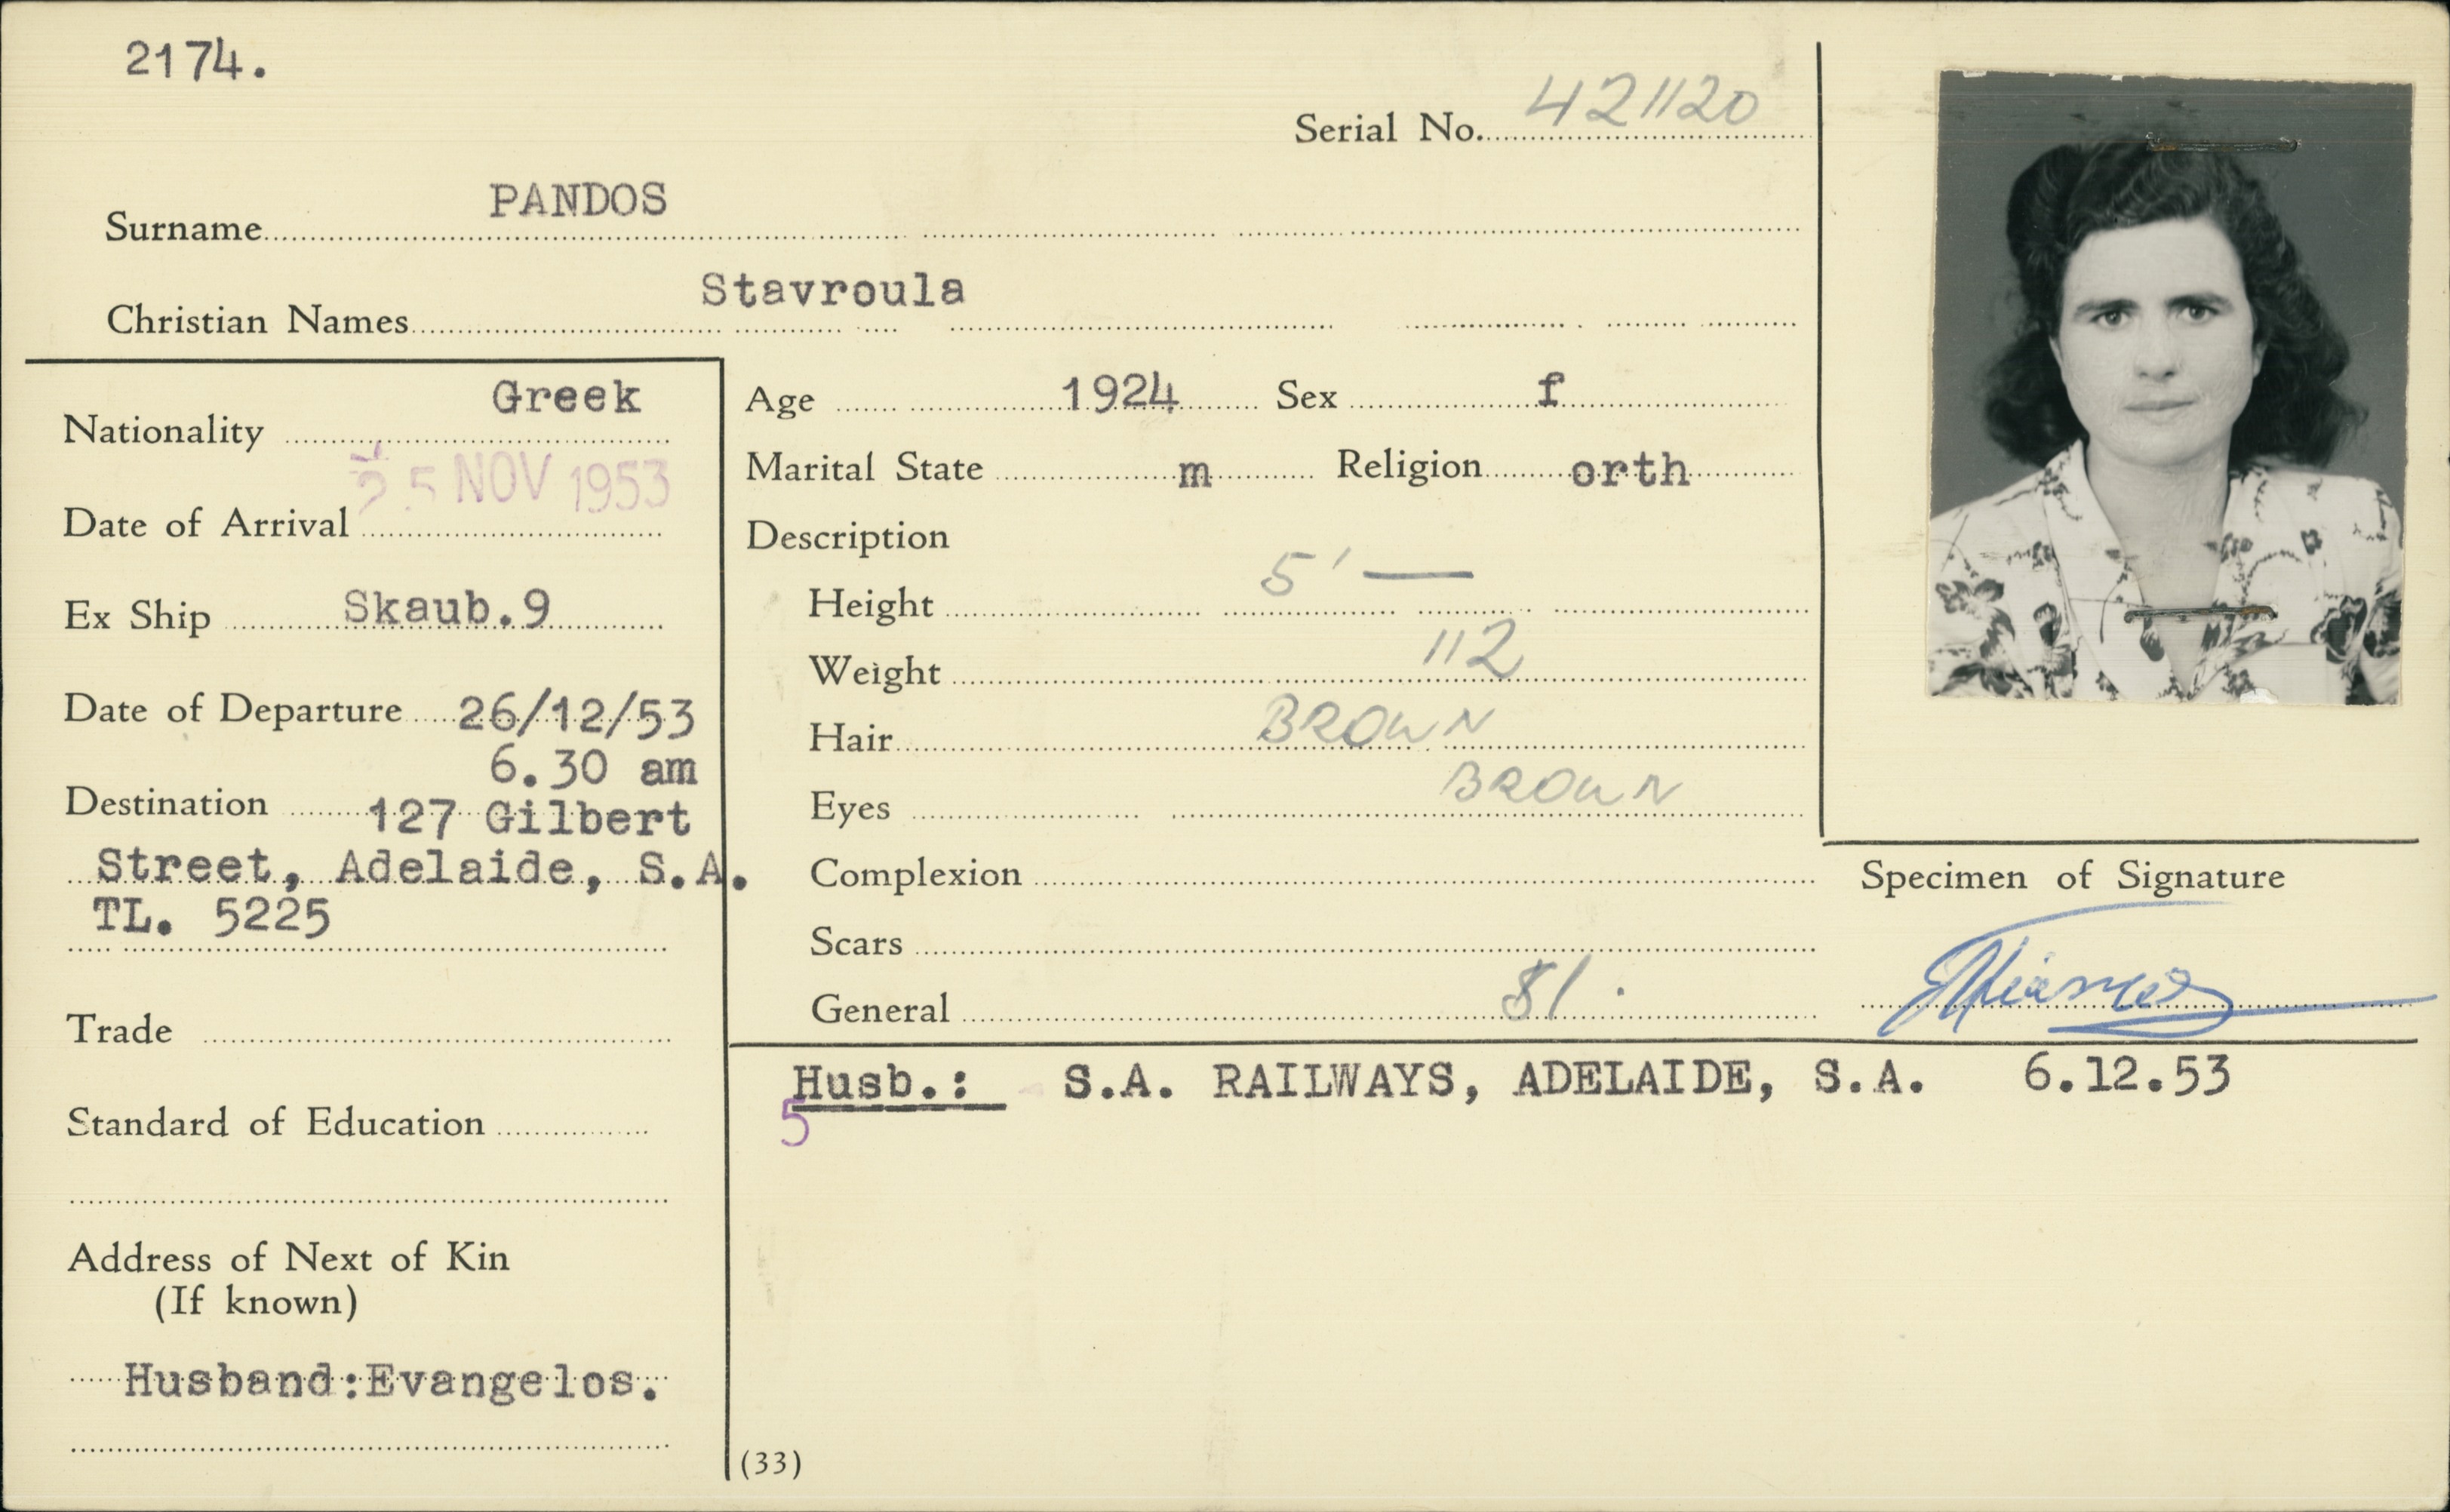 2174.
Serial No. 421120
Surname PANDOS
Christian Names Stavroula
Nationality Greek
Date of Arrival 25 NOV 1953
Ex Ship Skaub.9
Date of Departure 26/12/53
6.30 am
Destination 127 Gilbert
Street, Adelaide, S.A.
TL. 5225
Trade
Standard of Education
Address of Next of Kin
(If known)
Husband:Evangelos.
Age 1924 Sex f
Marital State m Religion orth
Description
Height 5' —
Weight 112
Hair BROWN
Eyes BROWN
Complexion
Scars
General
Specimen of Signature
Husb.: S.A. RAILWAYS, ADELAIDE, S.A. 6.12.53
5
(33)